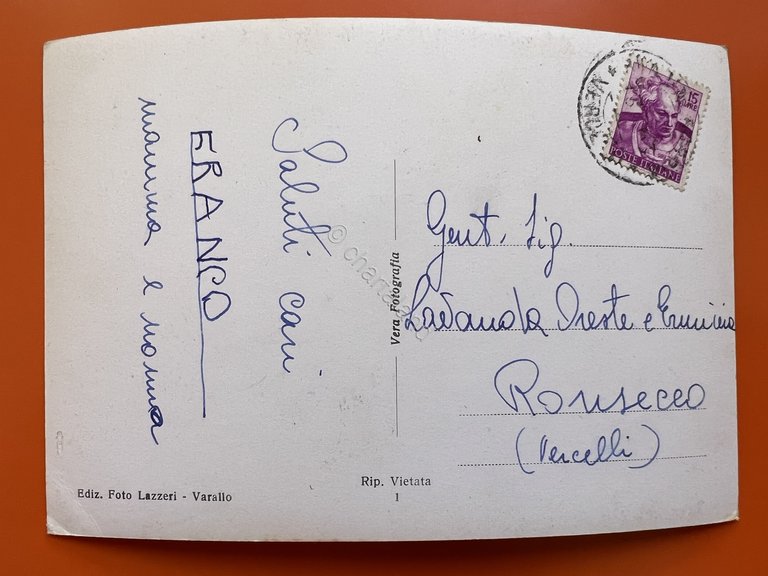 Saluti cari
FRANCO
mamma e nonna
Gent. Sig.
Oreste e Erminia
Ronsecco
(Vercelli)
Vera Fotografia
Ediz. Foto Lazzeri - Varallo
Rip. Vietata
1
15
LIRE
POSTE ITALIANE